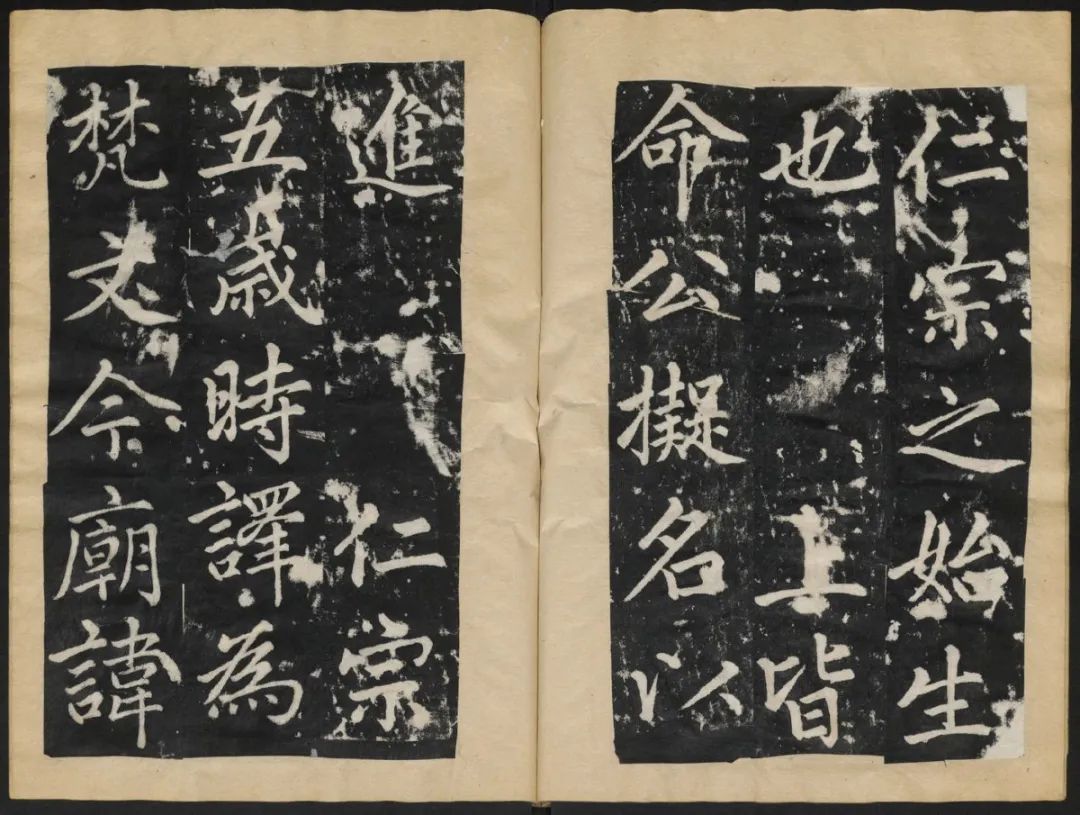 仁宗之始生
也　上皆
命公擬名以
進　仁宗
五歲時譯為
梵文今廟諱